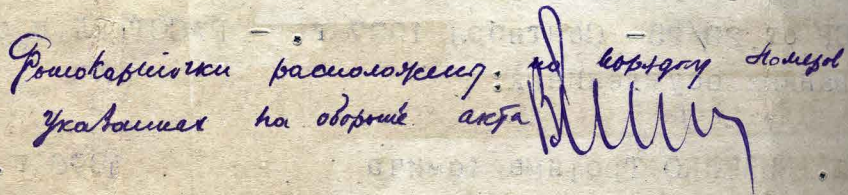 Фотокарточки расположены по порядку номеров
указанных на обороте акта